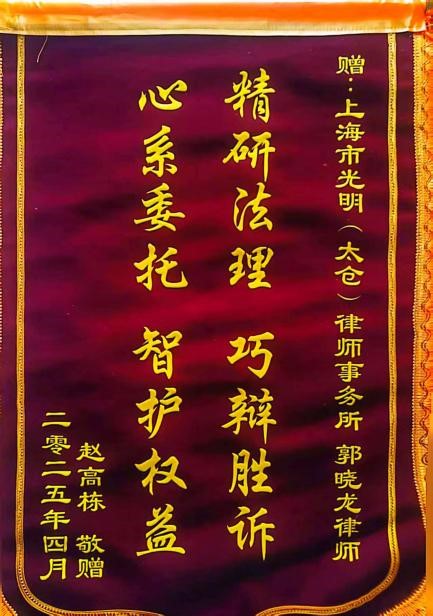 赠：上海市光明（太仓）律师事务所 郭晓龙律师
精研法理 巧辩胜诉
心系委托 智护权益
赵高栋 敬赠
二零二五年四月